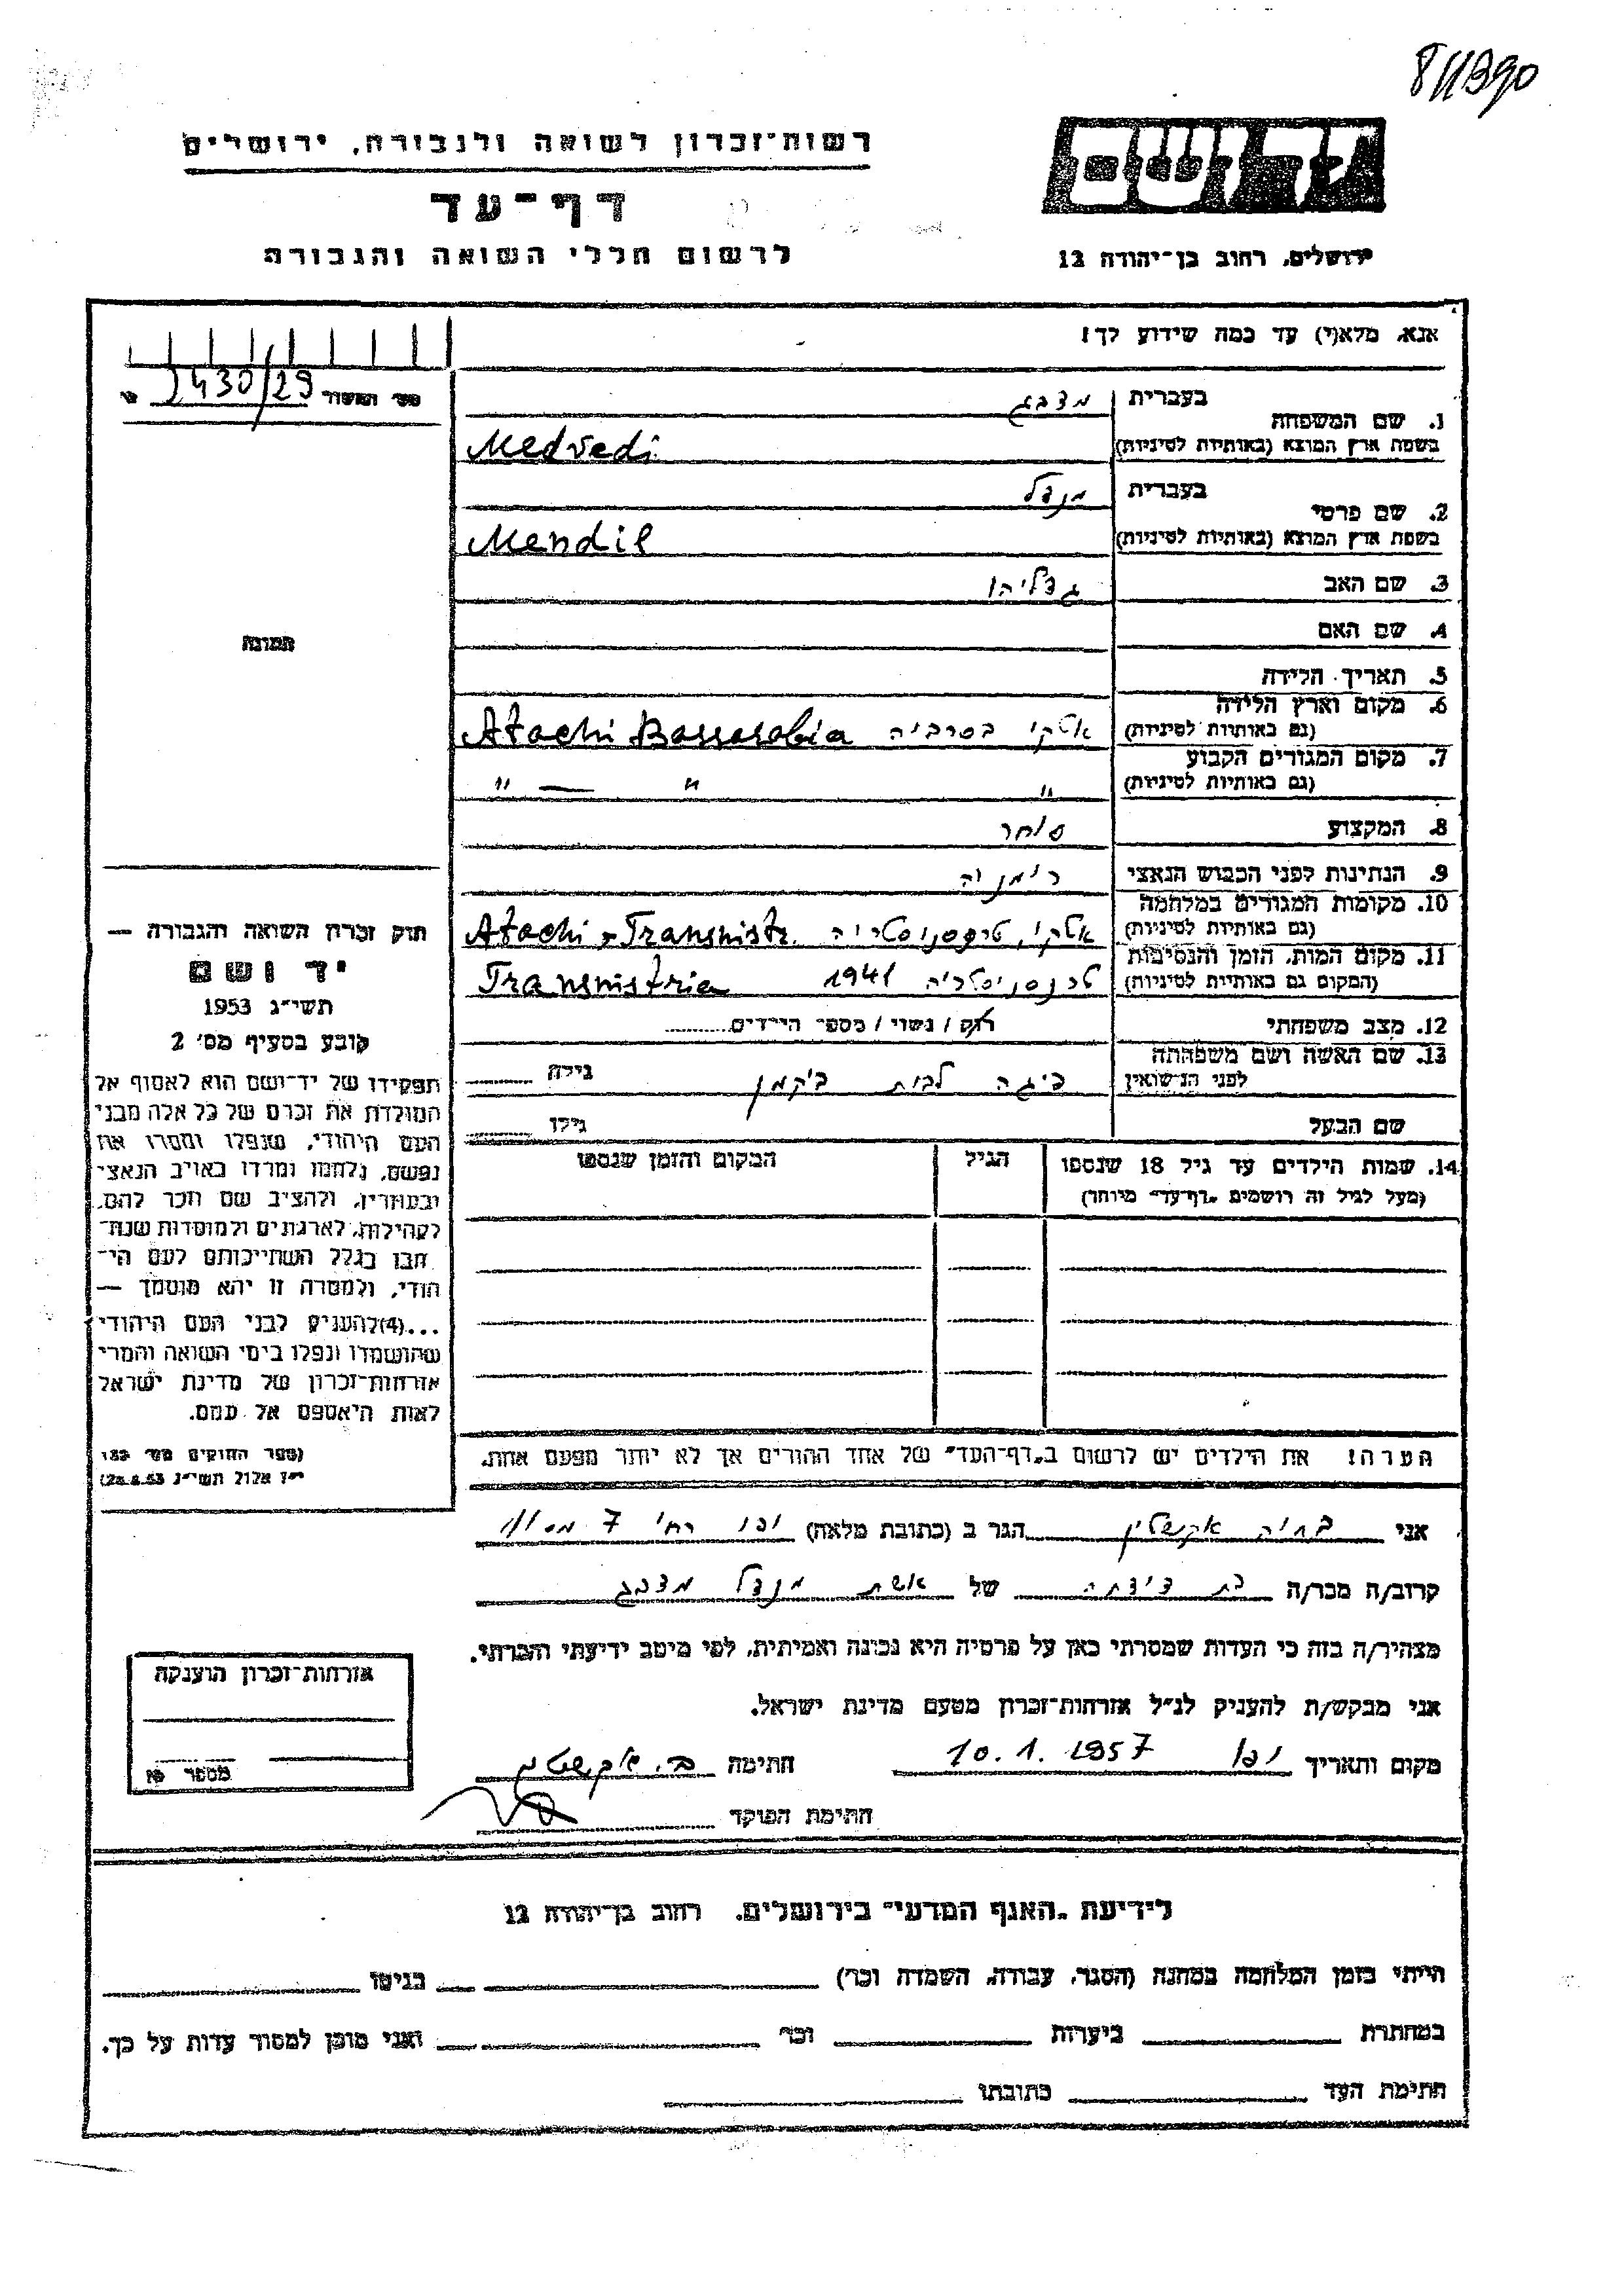 רשות־זכרון לשואה ולגבורה, ירושלים
דף־עד
לרשום חללי השואה והגבורה
ידושם
ירושלים, רחוב בן־יהודה 12
אנא, מלא(י) עד כמה שידוע לך!
מס׳ 2430/29
1. שם המשפחה
בעברית
בשפת ארץ המוצא (באותיות לטיניות) Medvedi
2. שם פרטי
בעברית מנדל
בשפת ארץ המוצא (באותיות לטיניות) Mendil
3. שם האב גדליהו
4. שם האם
5. תאריך הלידה
6. מקום וארץ הלידה
(גם באותיות לטיניות) אטקי בסרביה Atachi Bassarabia
7. מקום המגורים הקבוע
(גם באותיות לטיניות) " " — "
8. המקצוע סוחר
9. הנתינות לפני הכבוש הנאצי רומניה
10. מקומות המגורים במלחמה
(גם באותיות לטיניות) אטקי, Atachi - Transnistr.
11. מקום המות, הזמן והנסיבות
(המקום גם באותיות לטיניות) טרנסניסטריה 1941 Transnistria
12. מצב משפחתי רוק / נשוי / מספר הילדים
13. שם האשה ושם משפחתה
לפני הנישואין לבית גילה
שם הבעל גילו
14. שמות הילדים עד גיל 18 שנספו הגיל המקום והזמן שנספו
(מעל לגיל זה רושמים „דף־עד״ מיוחד)
הערה! את הילדים יש לרשום ב„דף־העד״ של אחד ההורים אך לא יותר מפעם אחת.
תמונה
חוק זכרון השואה והגבורה —
יד ושם
תשי״ג 1953
קובע בסעיף מס׳ 2
תפקידו של יד־ושם הוא לאסוף אל
המולדת את זכרם של כל אלה מבני
העם היהודי, שנפלו ומסרו את
נפשם, נלחמו ומרדו באויב הנאצי
ובעוזריו, ולהציב שם וזכר להם,
לקהילות, לארגונים ולמוסדות שנח־
רבו בגלל השתייכותם לעם הי־
הודי, ולמטרה זו יהא מוסמך —
...(4) להעניק לבני העם היהודי
שהושמדו ונפלו בימי השואה והמרי
אזרחות־זכרון של מדינת ישראל
לאות היאספם אל עמם.
(ספר החוקים מס׳ 132
י״ז אלול תשי״ג 28.8.53)
אני הגר ב (כתובת מלאה) יפו רח׳ 7
קרוב/ה מכר/ה בת דודתה של אשת מנדל
מצהיר/ה בזה כי העדות שמסרתי כאן על פרטיה היא נכונה ואמיתית, לפי מיטב ידיעתי והכרתי.
אני מבקש/ת להעניק לנ״ל אזרחות־זכרון מטעם מדינת ישראל.
מקום ותאריך יפו 10.1.1957 חתימה
חתימת הפוקד
אזרחות־זכרון הוענקה
מספר
לידיעת „האגף המדעי״ בירושלים, רחוב בן־יהודה 12
הייתי בזמן המלחמה במחנה (הסגר, עבודה, השמדה וכו׳) בגיטו
במחתרת ביערות וכו׳ ואני מוכן למסור עדות על כך.
חתימת העד כתובתו